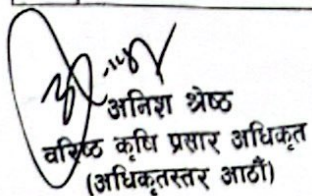 अनिश श्रेष्ठ
वरिष्ठ कृषि प्रसार अधिकृत
(अधिकृतस्तर आठौं)